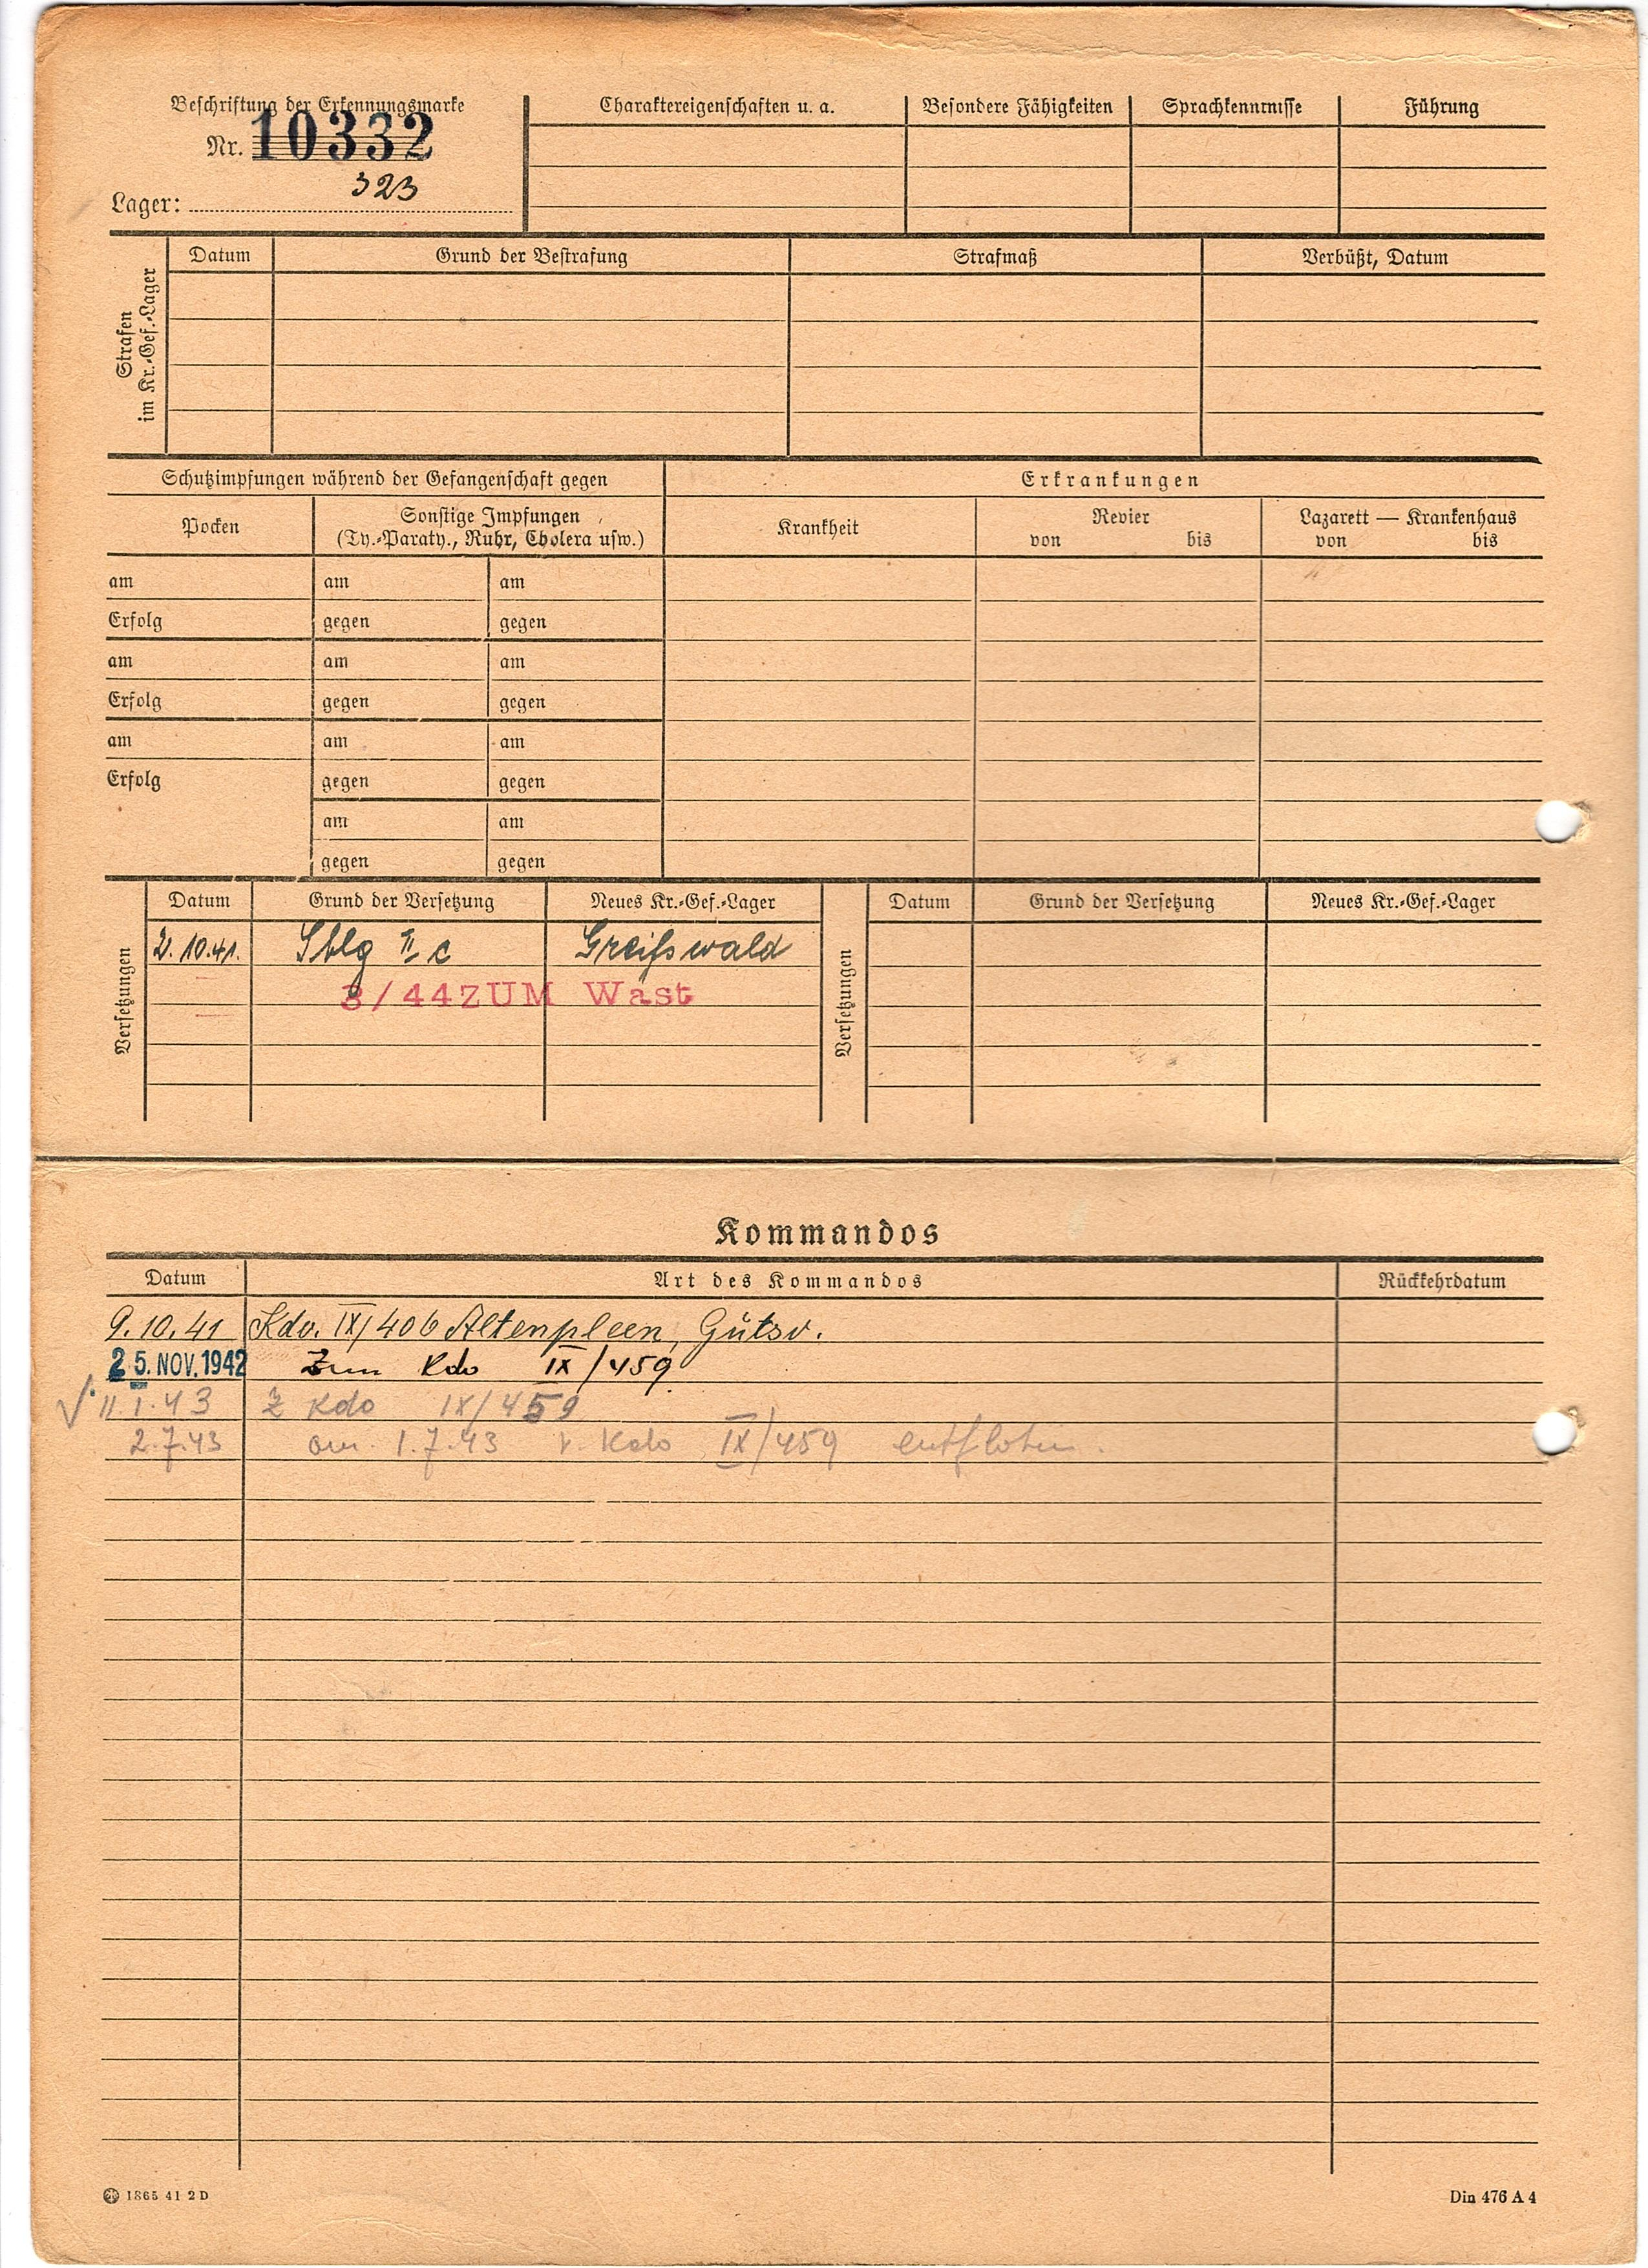 Beschriftung der Erkennungsmarke
Nr. 10332
323
Lager:
Charaktereigenschaften u. a. Besondere Fähigkeiten Sprachkenntnisse Führung
Strafen im Kr.-Gef.-Lager
Datum Grund der Bestrafung Strafmaß Verbüßt, Datum
Schutzimpfungen während der Gefangenschaft gegen Erkrankungen
Pocken
Sonstige Impfungen
(Ty.-Paraty., Ruhr, Cholera usw.)
Krankheit
Revier
von bis
Lazarett — Krankenhaus
von bis
am am am
Erfolg gegen gegen
am am am
Erfolg gegen gegen
am am am
Erfolg gegen gegen
am am
gegen gegen
Versetzungen
Datum Grund der Versetzung Neues Kr.-Gef.-Lager
2.10.41. Stlg II c Greifswald
3/44 ZUM Wast
Versetzungen
Datum Grund der Versetzung Neues Kr.-Gef.-Lager
Kommandos
Datum Art des Kommandos Rückkehrdatum
9.10.41 Kdo. IX/406 Altenpleen, Gutsv.
25. NOV. 1942 Zum Kdo IX/459
11.1.43 Z Kdo IX/459
2.7.43 am 1.7.43 v. Kdo IX/459 entflohen.
1865 41 2 D
Din 476 A 4